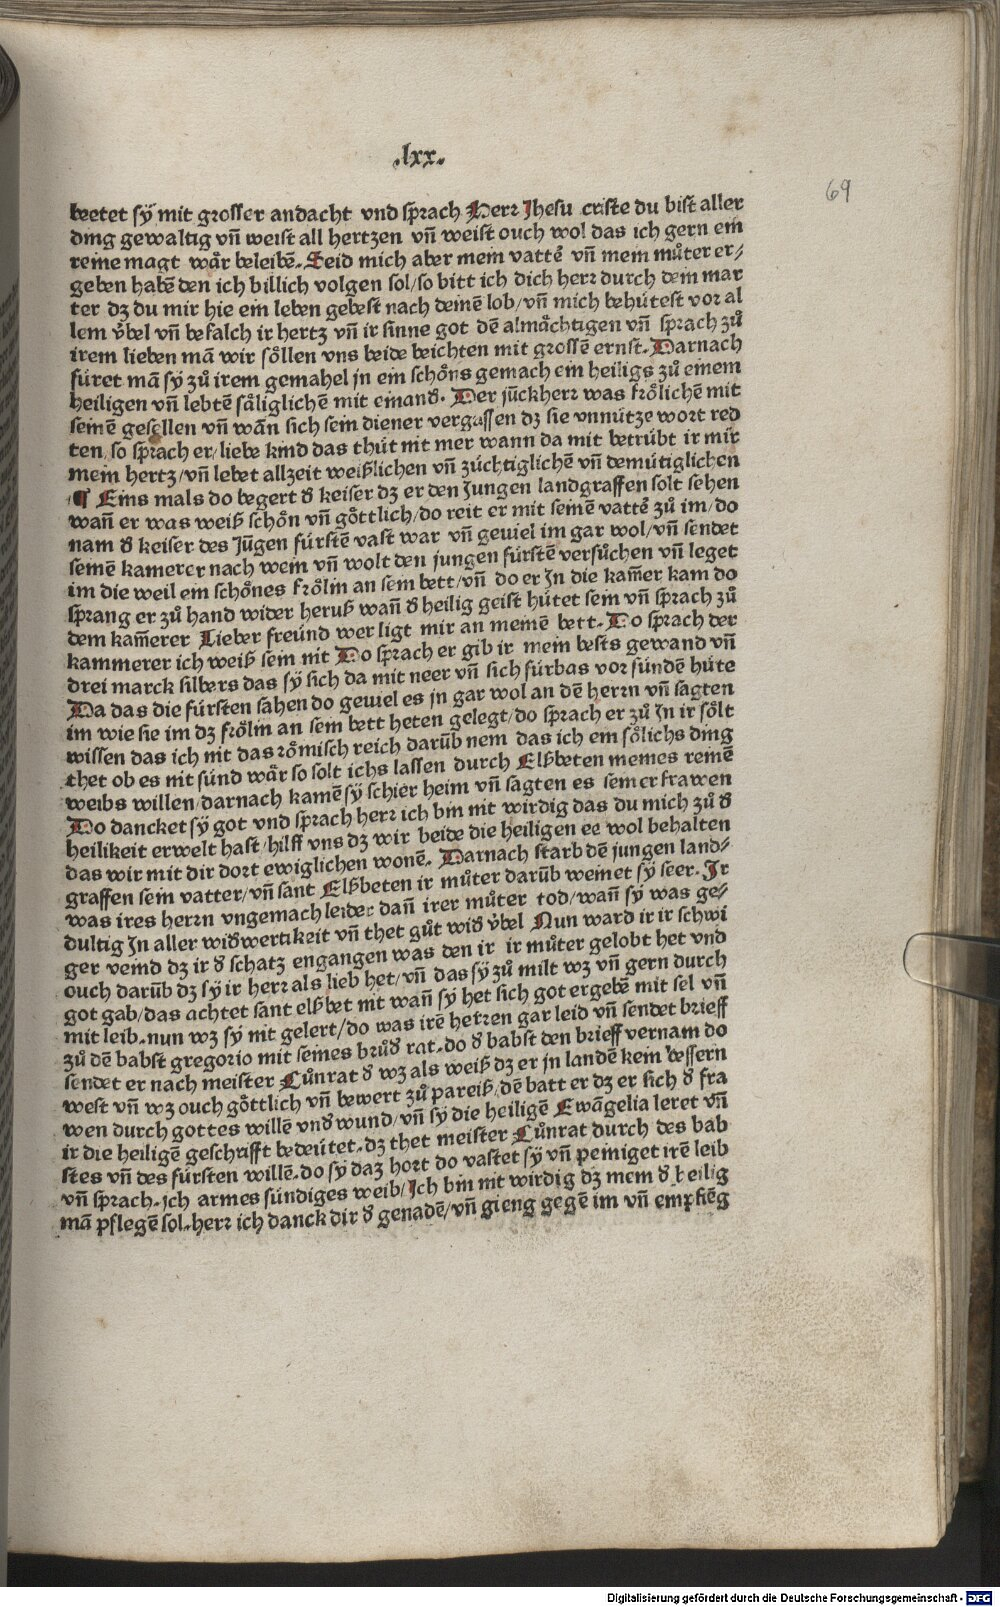 .lxx.
69
beetet sÿ mit grosser andacht vnd sprach Herr Jhesu criste du bist aller
ding gewaltig vñ weist all hertzen vñ weist ouch wol das ich gern ein
reine magt wår beleibē. Seid mich aber mein vatter vñ mein můter er-
geben habē den ich billich volgen sol/so bitt ich dich herr durch dein mar
ter dz du mir hie ein leben gebest nach deinē lob/vñ mich behůtest vor al
lem v̈bel vñ befalch ir hertz vñ ir sinne got dē almåchtigen vñ sprach zů
irem lieben mā wir söllen vns beide beichten mit grossē ernst. Darnach
füret mā sÿ zů irem gemahel jn ein schöns gemach ein heiligs zů einem
heiligen vñ lebtē såliglichē mit einanď. Der jūckherr was frölichē mit
seinē gesellen vñ wān sich sein diener vergassen dz sie vnnütze wort red
ten/so sprach er/liebe kind das thůt nit mer wann da mit betrübt ir mir
mein hertz/vñ lebet allzeit weißlichen vñ züchtiglichē vñ demütiglichen
¶ Eins mals do begert ď keiser dz er den Jungen landgraffen solt sehen
wañ er was weiß schön vñ göttlich/do reit er mit seinē vatter zů im/do
nam ď keiser des Jūgen fürstē vast war vñ geuiel im gar wol/vñ sendet
seinē kamerer nach wein vñ wolt den jungen fürstē versůchen vñ leget
im die weil ein schönes frölin an sein bett/vñ do er Jn die kam̄er kam do
sprang er zů hand wider heruß wañ ď heilig geist hůtet sein vñ sprach zů
dem kam̄erer Lieber freünd wer ligt mir an meinē bett. Do sprach der
kammerer ich weiß sein nit Do sprach er gib ir mein bests gewand vñ
drei marck silbers das sÿ sich da mit neer vñ sich fürbas vor sündē hüte
Da das die fürsten sahen do geuiel es jn gar wol an dē herrn vñ sagten
im wie sie im dz frölin an sein bett heten gelegt/do sprach er zů Jn ir sölt
wissen das ich nit das römisch reich darūb nem das ich ein sölichs ding
thet ob es nit sünd wår so solt ichs lassen durch Elßbeten meines reinē
weibs willen/darnach kamē sÿ schier heim vñ sagten es seiner frawen
Do dancket sÿ got vnd sprach herr ich bin nit wirdig das du mich zů ď
heilikeit erwelt hast/hilff vns dz wir beide die heiligen ee wol behalten
das wir mit dir dort ewiglichen wonē. Darnach starb dē jungen land-
graffen sein vatter/vñ sant Elßbeten ir můter darūb weinet sÿ seer. Jr
was ires herrn vngemach leider dañ irer můter tod/wañ sÿ was ge-
dultig Jn aller wiďwertikeit vñ thet gůt wiď v̈bel Nun ward ir ir schwi
ger veind dz ir ď schatz engangen was den ir ir můter gelobt het vnd
ouch darūb dz sÿ ir herr als lieb het/vñ das sÿ zů milt wz vñ gern durch
got gab/das achtet sant elßbet nit wañ sÿ het sich got ergebē mit sel vñ
mit leib. nun wz sÿ nit gelert/do was irē herren gar leid vñ sendet brieff
zů dē babst gregorio mit seines brůď rat. do ď babst den brieff vernam do
sendet er nach meister Cůnrat ď wz als weiß dz er jn landē kein bessern
west vñ wz ouch göttlich vñ bewert zů pareiß/dē batt er dz er sich ď fra
wen durch gottes willē vnďwund/vñ sÿ die heiligē Ewāgelia leret vñ
ir die heiligē geschrifft bedeütet. dz thet meister Cůnrat durch des bab
stes vñ des fürsten willē. do sÿ daz hort do vastet sÿ vñ peiniget irē leib
vñ sprach. ich armes sündiges weib/Jch bin nit wirdig dz mein ď heilig
mā pflegē sol. herr ich danck dir ď genadē/vñ gieng gegē im vñ empfiēg
Digitalisierung gefördert durch die Deutsche Forschungsgemeinschaft - DFG